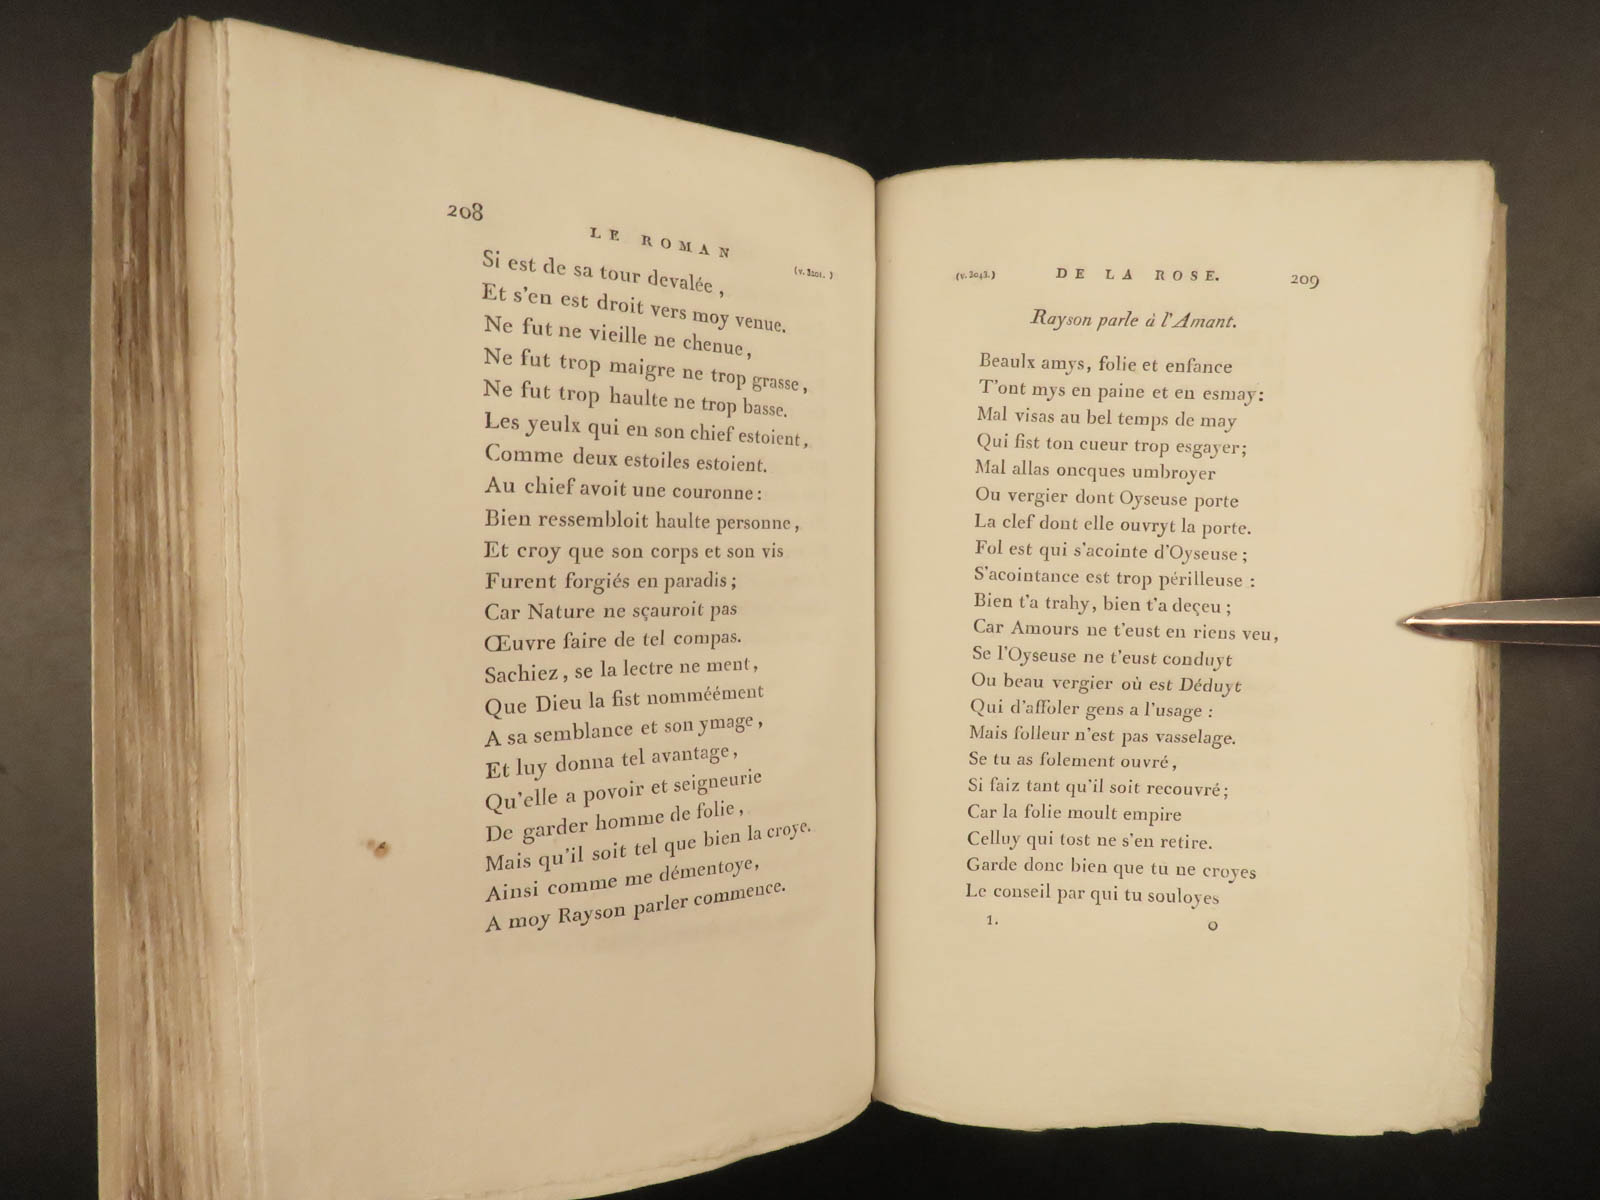 208
LE ROMAN
Si est de sa tour devalée,
Et s'en est droit vers moy venue.
Ne fut ne vieille ne chenue,
Ne fut trop maigre ne trop grasse,
Ne fut trop haulte ne trop basse.
Les yeulx qui en son chief estoient,
Comme deux estoiles estoient.
Au chief avoit une couronne:
Bien ressembloit haulte personne,
Et croy que son corps et son vis
Furent forgiés en paradis;
Car Nature ne sçauroit pas
Œuvre faire de tel compas.
Sachiez, se la lectre ne ment,
Que Dieu la fist nomméément
A sa semblance et son ymage,
Et luy donna tel avantage,
Qu'elle a povoir et seigneurie
De garder homme de folie,
Mais qu'il soit tel que bien la croye.
Ainsi comme me démentoye,
A moy Rayson parler commence.
(v. 3042.) DE LA ROSE. 209
Rayson parle à l'Amant.
Beaulx amys, folie et enfance
T'ont mys en paine et en esmay:
Mal visas au bel temps de may
Qui fist ton cueur trop esgayer;
Mal allas oncques umbroyer
Ou vergier dont Oyseuse porte
La clef dont elle ouvryt la porte.
Fol est qui s'acointe d'Oyseuse;
S'acointance est trop périlleuse:
Bien t'a trahy, bien t'a deçeu;
Car Amours ne t'eust en riens veu,
Se l'Oyseuse ne t'eust conduyt
Ou beau vergier où est Déduyt
Qui d'affoler gens a l'usage:
Mais folleur n'est pas vasselage.
Se tu as folement ouvré,
Si faiz tant qu'il soit recouvré;
Car la folie moult empire
Celluy qui tost ne s'en retire.
Garde donc bien que tu ne croyes
Le conseil par qui tu souloyes
1. O